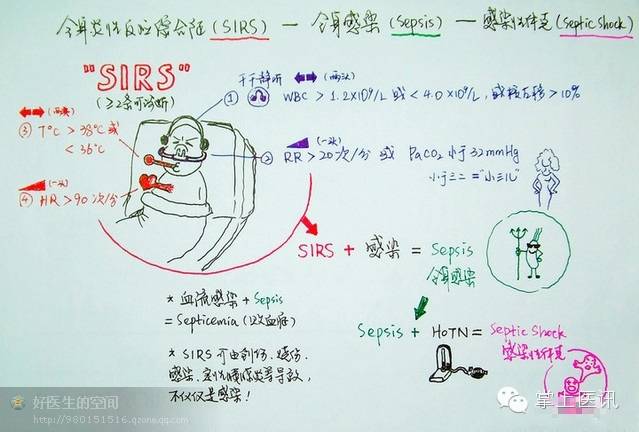 全身炎性反应综合征(SIRS) — 全身感染(Sepsis) — 感染性休克(Septic Shock)
"SIRS"
(≥2条可诊断)
① 干干静听 (两次) WBC > 1.2×10⁹/L 或 < 4.0×10⁹/L, 或核左移 > 10%
(两次)
③ T°C > 38°C 或
< 36°C
(一次)
② RR > 20次/分 或 PaCO₂ 小于 32mmHg
小于三二 = "小三儿"
(一次)
④ HR > 90次/分
SIRS + 感染 = Sepsis
全身感染
* 血流感染 + Sepsis
= Septicemia (败血症)
Sepsis + HoTN = Septic Shock
感染性休克
* SIRS 可由创伤、烧伤、
感染、急性胰腺炎等导致,
不仅仅是感染!
好医生的空间
http://980151516.qzone.qq.com
掌上医讯